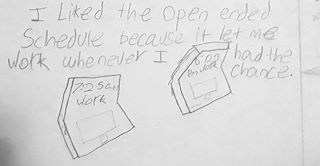 I Liked the Open ended
Schedule because it let me
work whenever I had the
chance.
7:25am
work
work